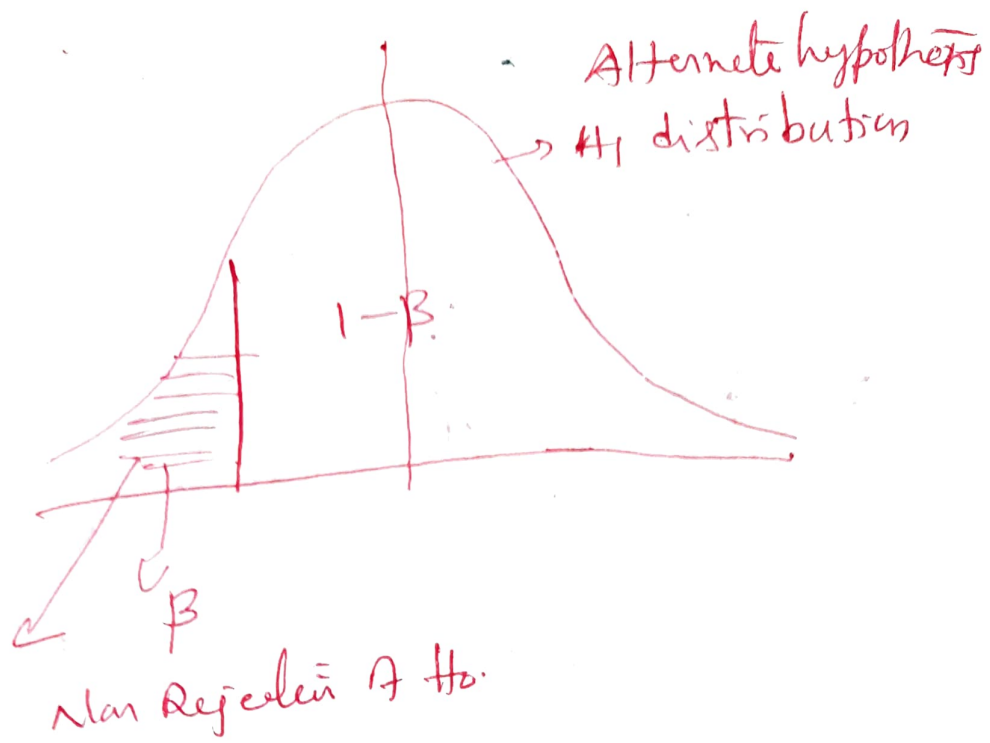 Alternete hypothesis
H1 distribution
1-β
β
Non Rejection of Ho.